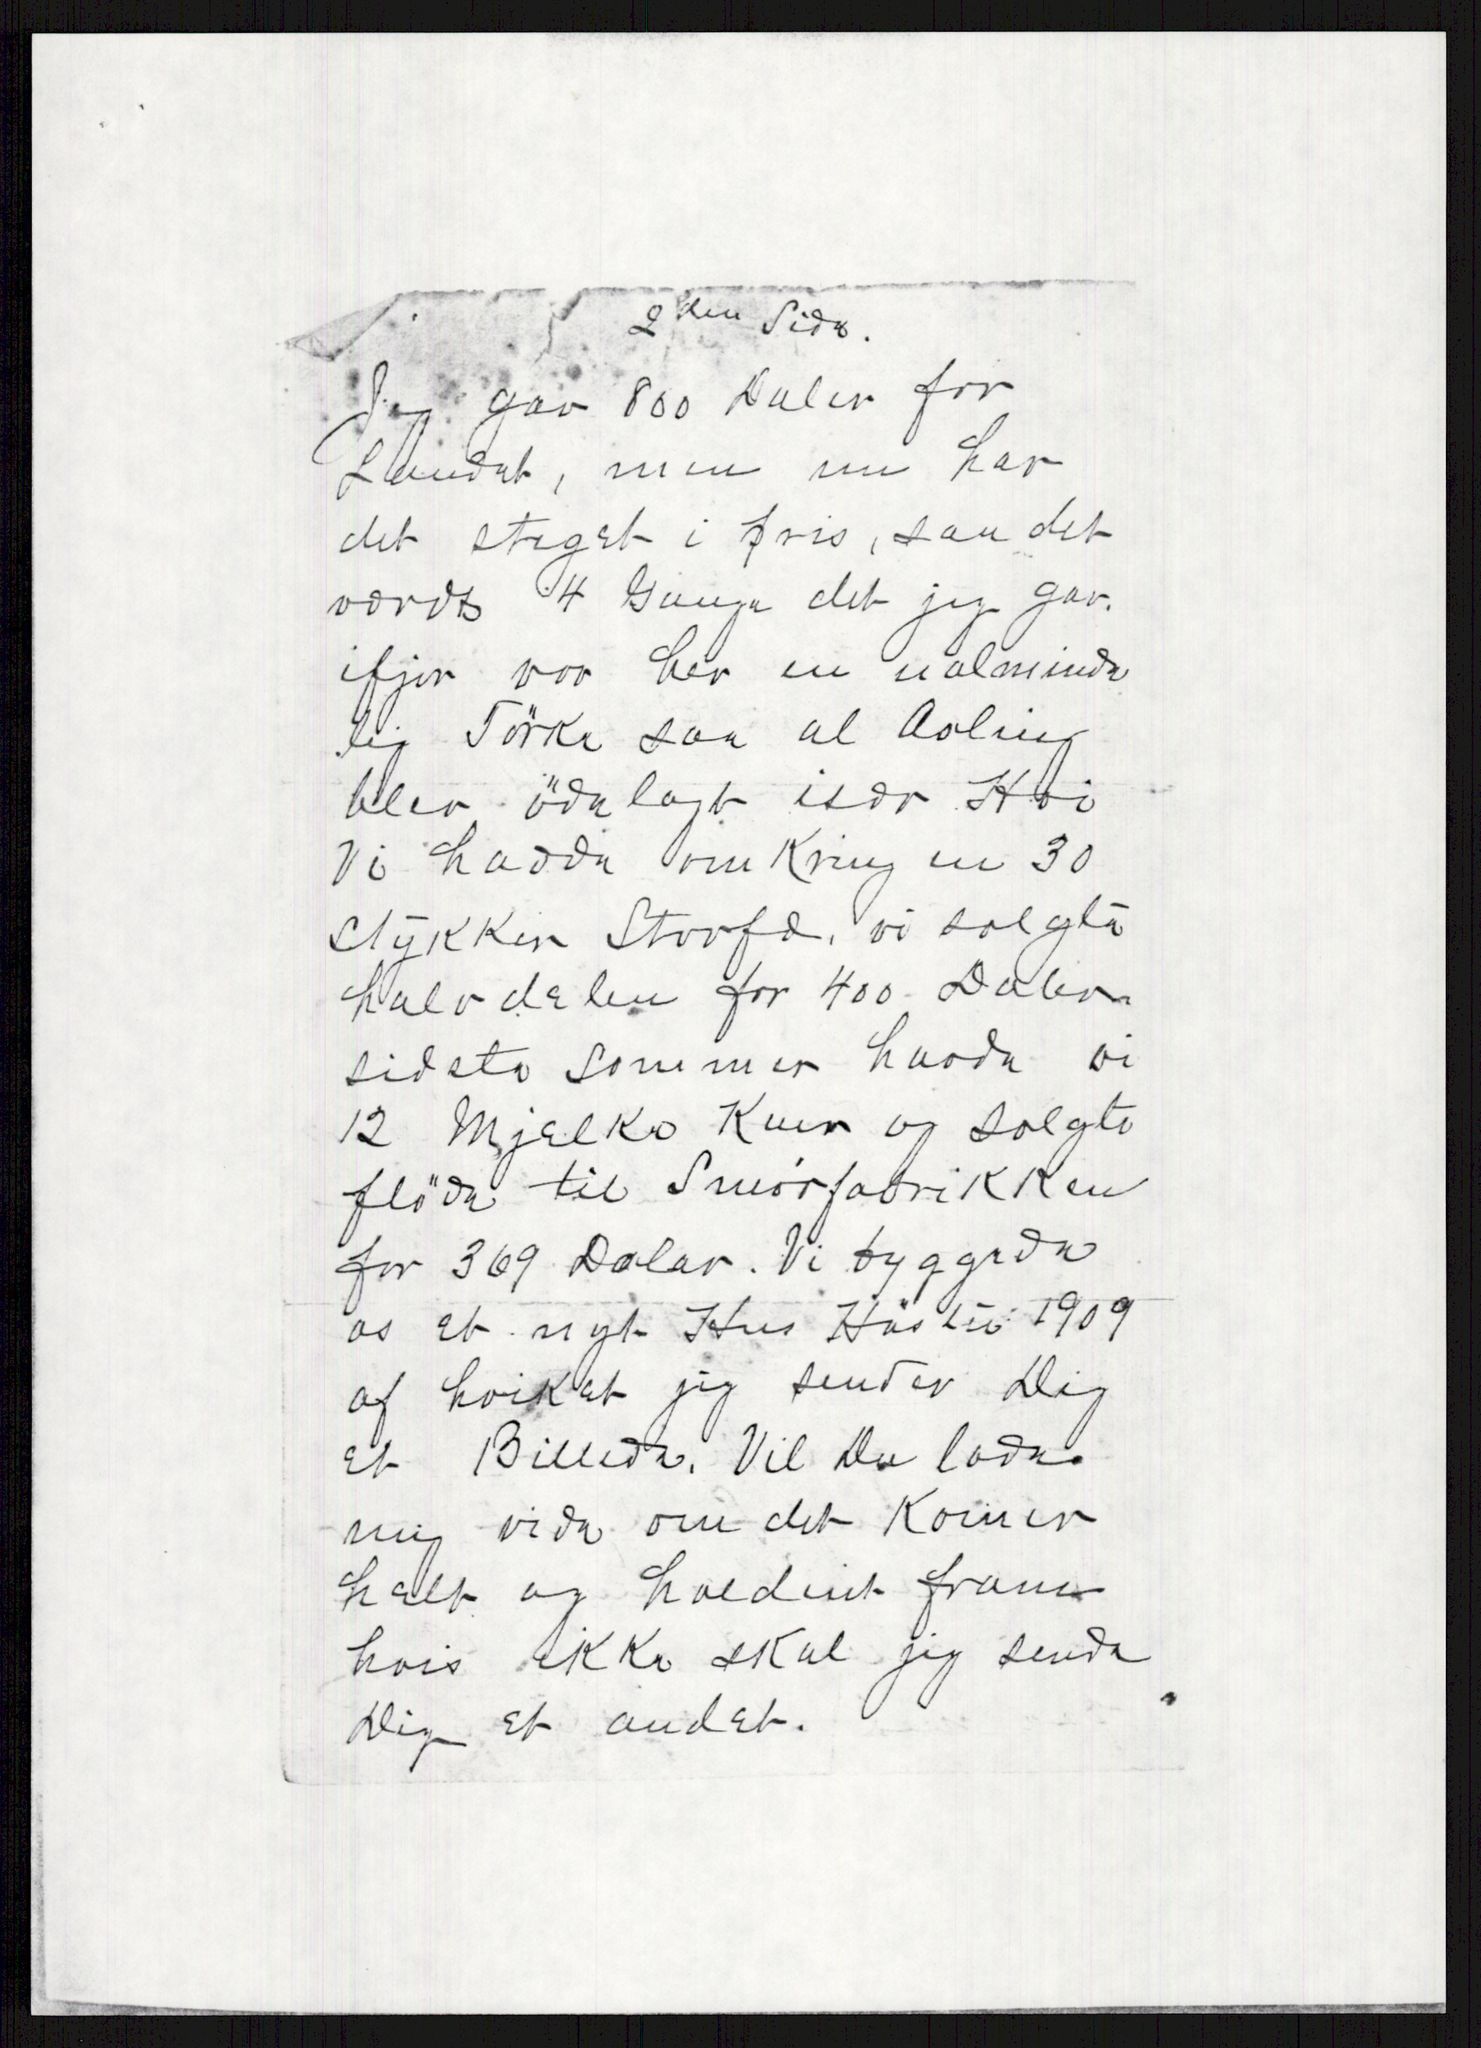 2den Side.
Jeg gav 800 Daler for
Landet, men nu har
det steget i pris, saa det
værdt 4 Gange det jeg gav.
ifjor var her en ualminde
lig Törke saa al Avling
blev ödelagt især Hvi
Vi hadde omKring en 30
stykker Storfæ. vi solgte
halvdelen for 400 Daler.
sidste Sommer havde vi
12 Mjelke Kuer og solgte
flöde til Smörfabrikken
for 369 Daler. Vi byggede
os et nyt Hus Hösten 1909
af hviket jeg sender Dig
et Billede. Vil Du lade
mig vide om det Kommer
helt og holdent fram
hvis ikke skal jeg sende
Dig et andet.